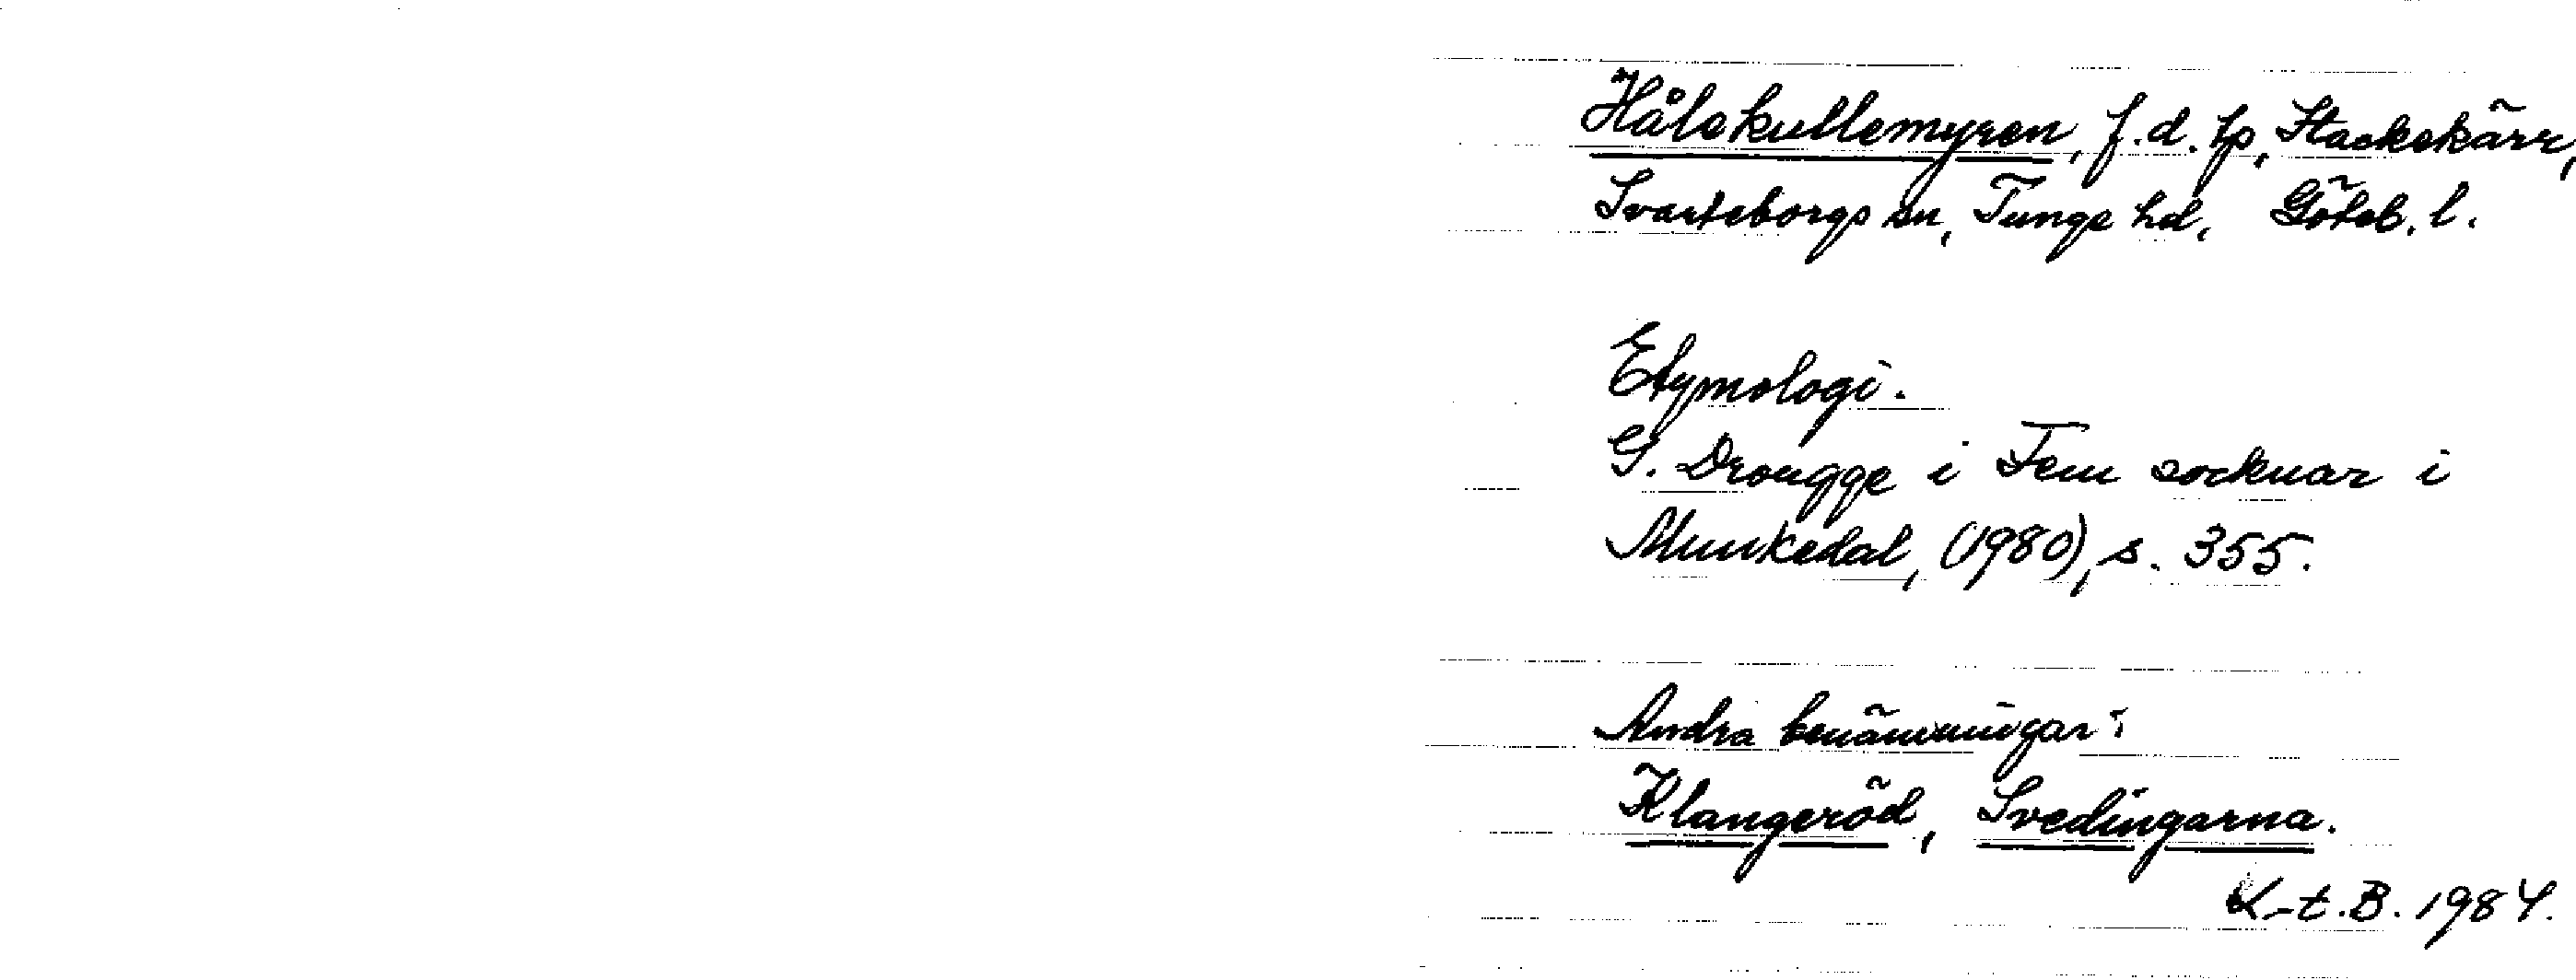 Hålekullemyren, f.d. tp, Stackekärr,
Svarteborgs sn, Tunge hd, Göteb. l.
Etymologi.
G. Drougge i Fem socknar i
Munkedal, (1980), s. 355.
Andra benämningar:
Klangeröd, Svedingarna.
K-t. B. 1984.